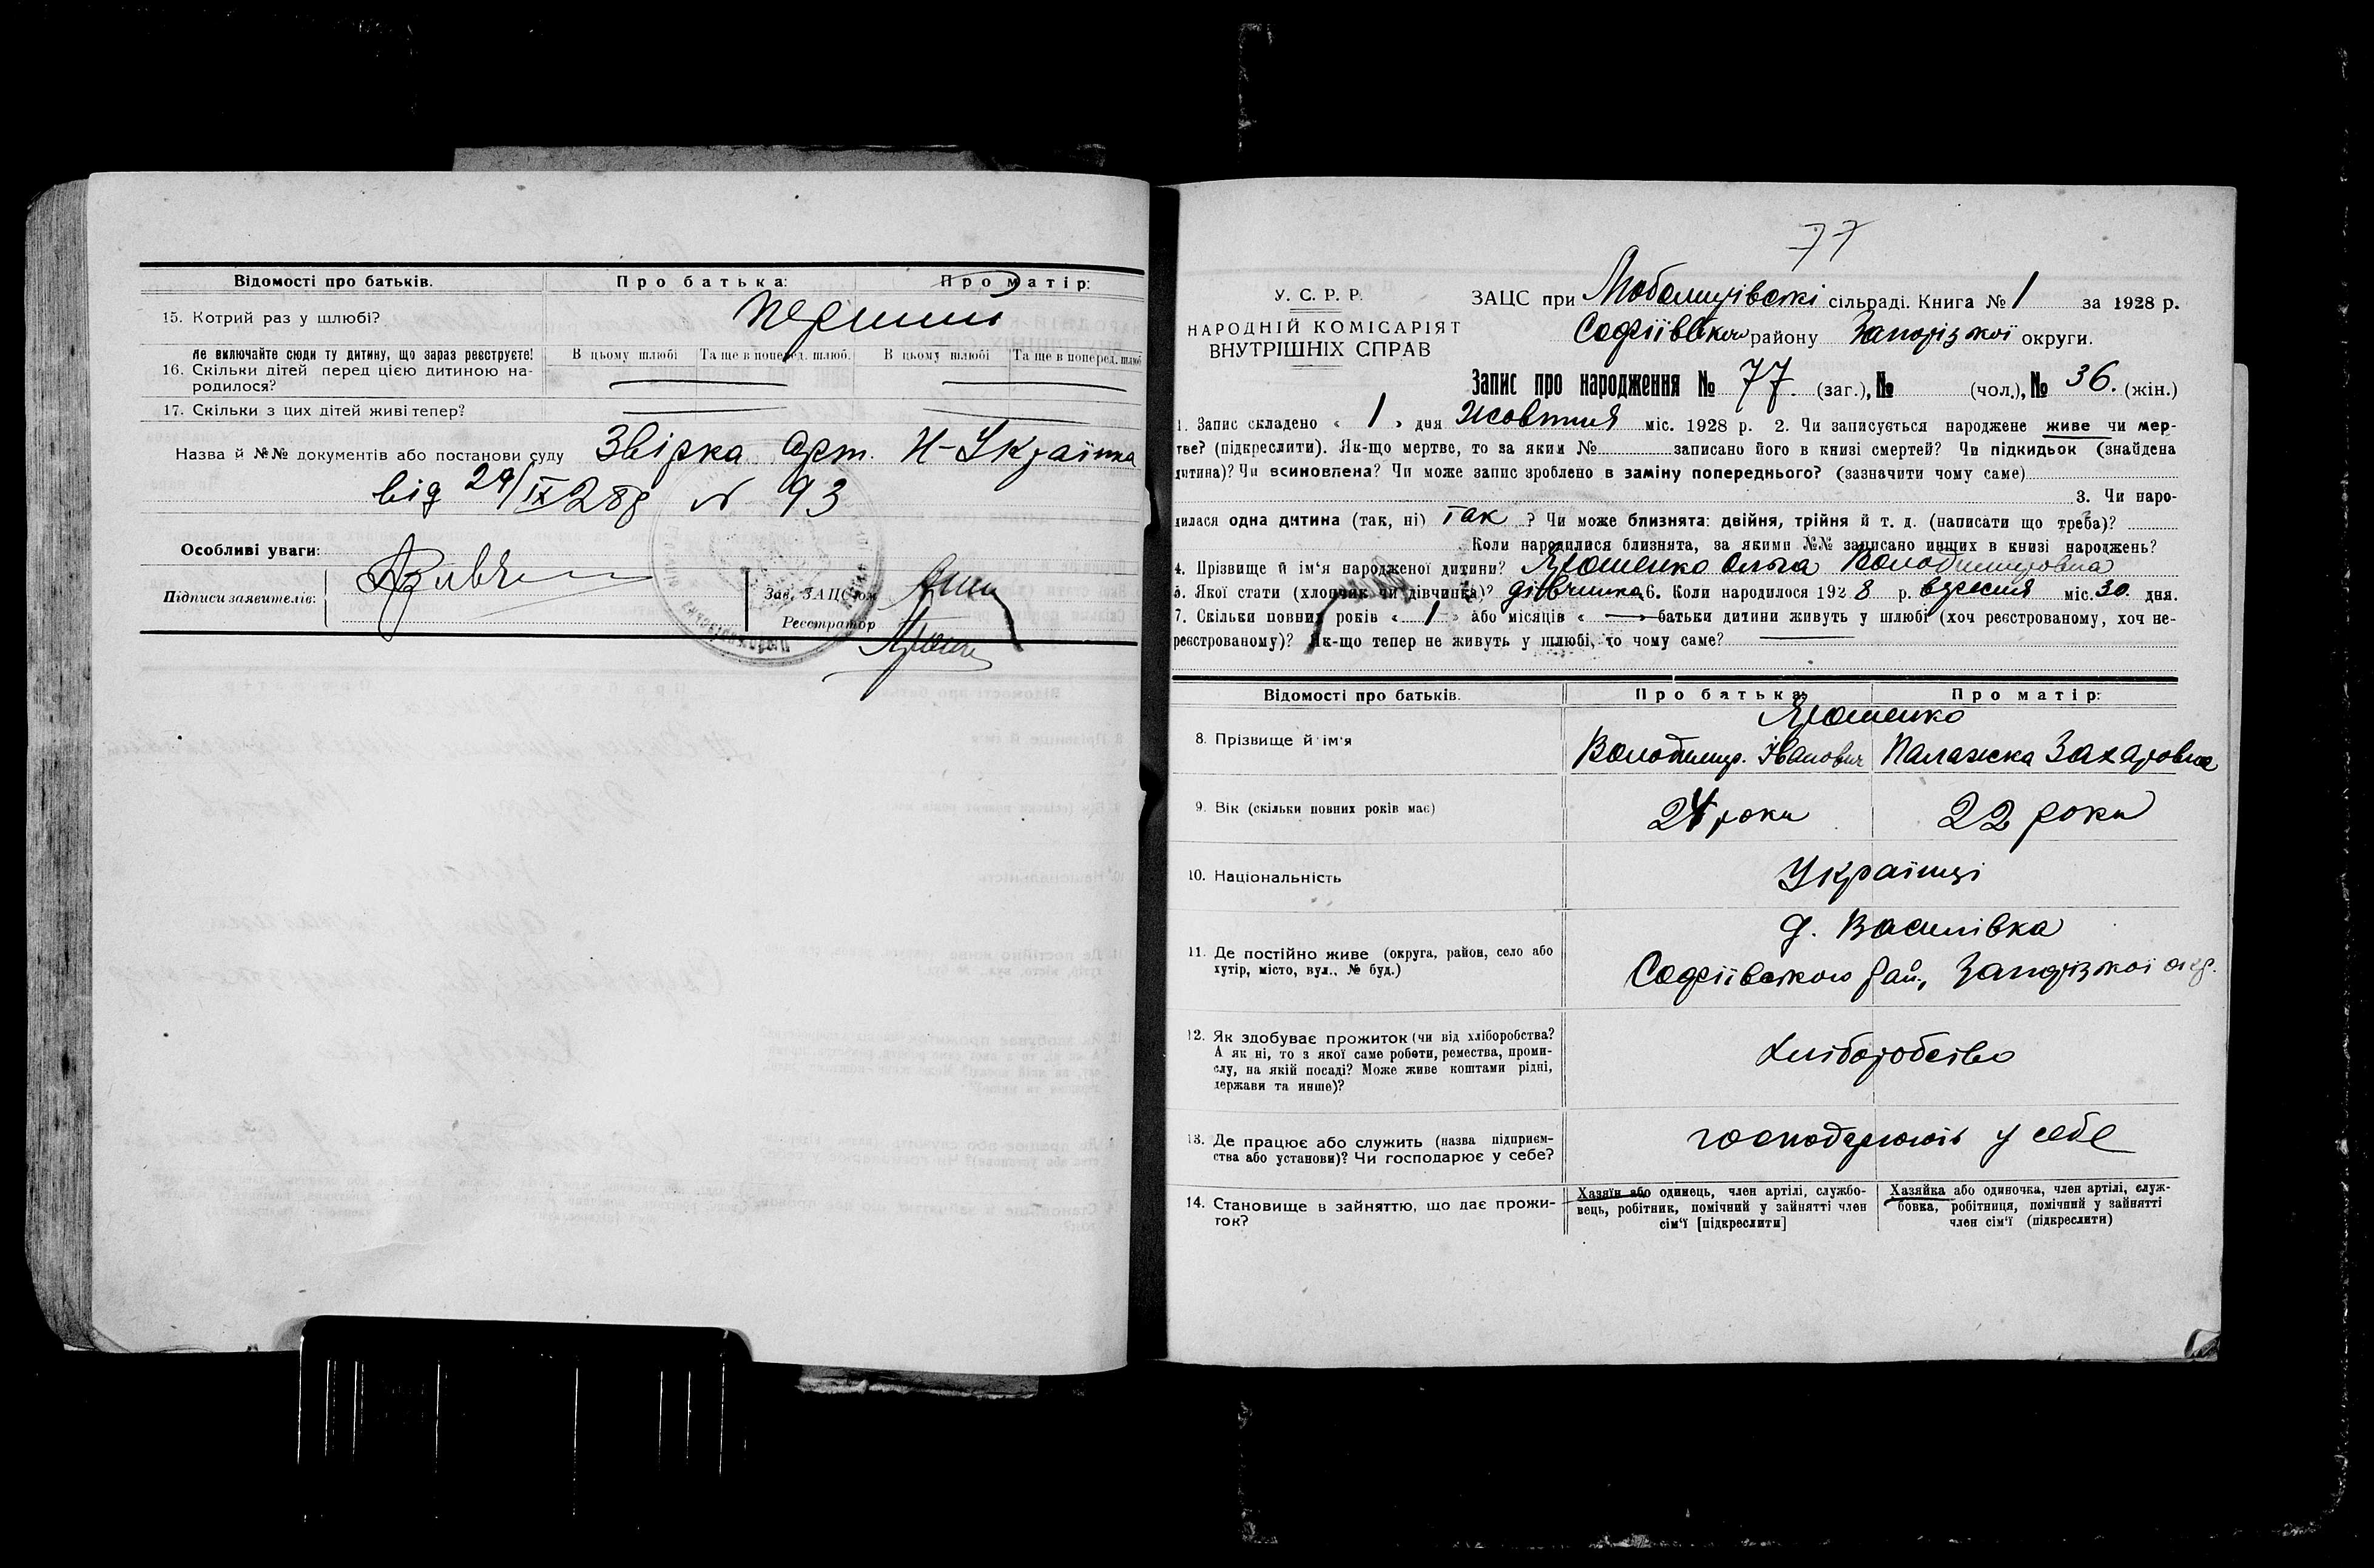 Відомості про батьків. Про батька: Про матір:
15. Котрий раз у шлюбі? перший
Не включайте сюди ту дитину, що зараз реєструєте! В цьому шлюбі Та ще в поперед. шлюб. В цьому шлюбі Та ще в поперед. шлюб
16. Скільки дітей перед цією дитиною на-
родилося?
17. Скільки з цих дітей живі тепер?
Назва й №№ документів або постанови суду Звірка арт. Н-Українка
від 29/IX 28р N 93
Особливі уваги:
Підписи заявителів:
Зав. ЗАЦС'ом
Реєстратор
77
У. С. Р. Р.
НАРОДНІЙ КОМІСАРІЯТ
ВНУТРІШНІХ СПРАВ
ЗАЦС при сільраді. Книга № 1 за 1928 р.
району Запорізької округи.
Запис про народження № 77. (заг.), № (чол.), № 36. (жін.)
1. Запис складено « 1 » дня жовтня міс. 1928 р. 2. Чи записується народжене живе чи мер-
тве? (підкреслити). Як-що мертве, то за яким № записано його в книзі смертей? Чи підкидьок (знайдена
дитина)? Чи всиновлена? Чи може запис зроблено в заміну попереднього? (зазначити чому саме)
3. Чи наро-
дилася одна дитина (так, ні) так ? Чи може близнята: двійня, трійня й т. д. (написати що треба)?
Коли народилися близнята, за якими №№ записано инших в книзі народжень?
4. Прізвище й ім'я народженої дитини? Ярошенко Ольга Володимировна
5. Якої стати (хлопчик чи дівчинка)? дівчинка 6. Коли народилося 1928 р. вересня міс. 30 дня.
7. Скільки повних років « 1 » або місяців « — » батьки дитини живуть у шлюбі (хоч реєстрованому, хоч не-
реєстрованому)? Як-що тепер не живуть у шлюбі, то чому саме?
Відомості про батьків. Про батька: Про матір:
Ярошенко
8. Прізвище й ім'я Володимир. Іванович Палажка Захаровна
9. Вік (скільки повних років має) 24 роки 22 роки
10. Національність Українці
д. Василівка
11. Де постійно живе (округа, район, село або
хутір, місто, вул., № буд.) Софіівського рай, Запорізької окр.
12. Як здобуває прожиток (чи від хліборобства?
А як ні, то з якої саме роботи, ремества, проми-
слу, на якій посаді? Може живе коштами рідні,
держави та инше)?
хліборобство
13. Де працює або служить (назва підприєм-
ства або установи)? Чи господарює у себе?
господарюють у себе
14. Становище в зайняттю, що дає прожи-
ток?
Хазяїн або одинець, член артілі, службо-
вець, робітник, помічний у зайнятті член
сім'ї [підкреслити]
Хазяйка або одиночка, член артілі, служ-
бовка, робітниця, помічний у зайнятті
член сім'ї (підкреслити)